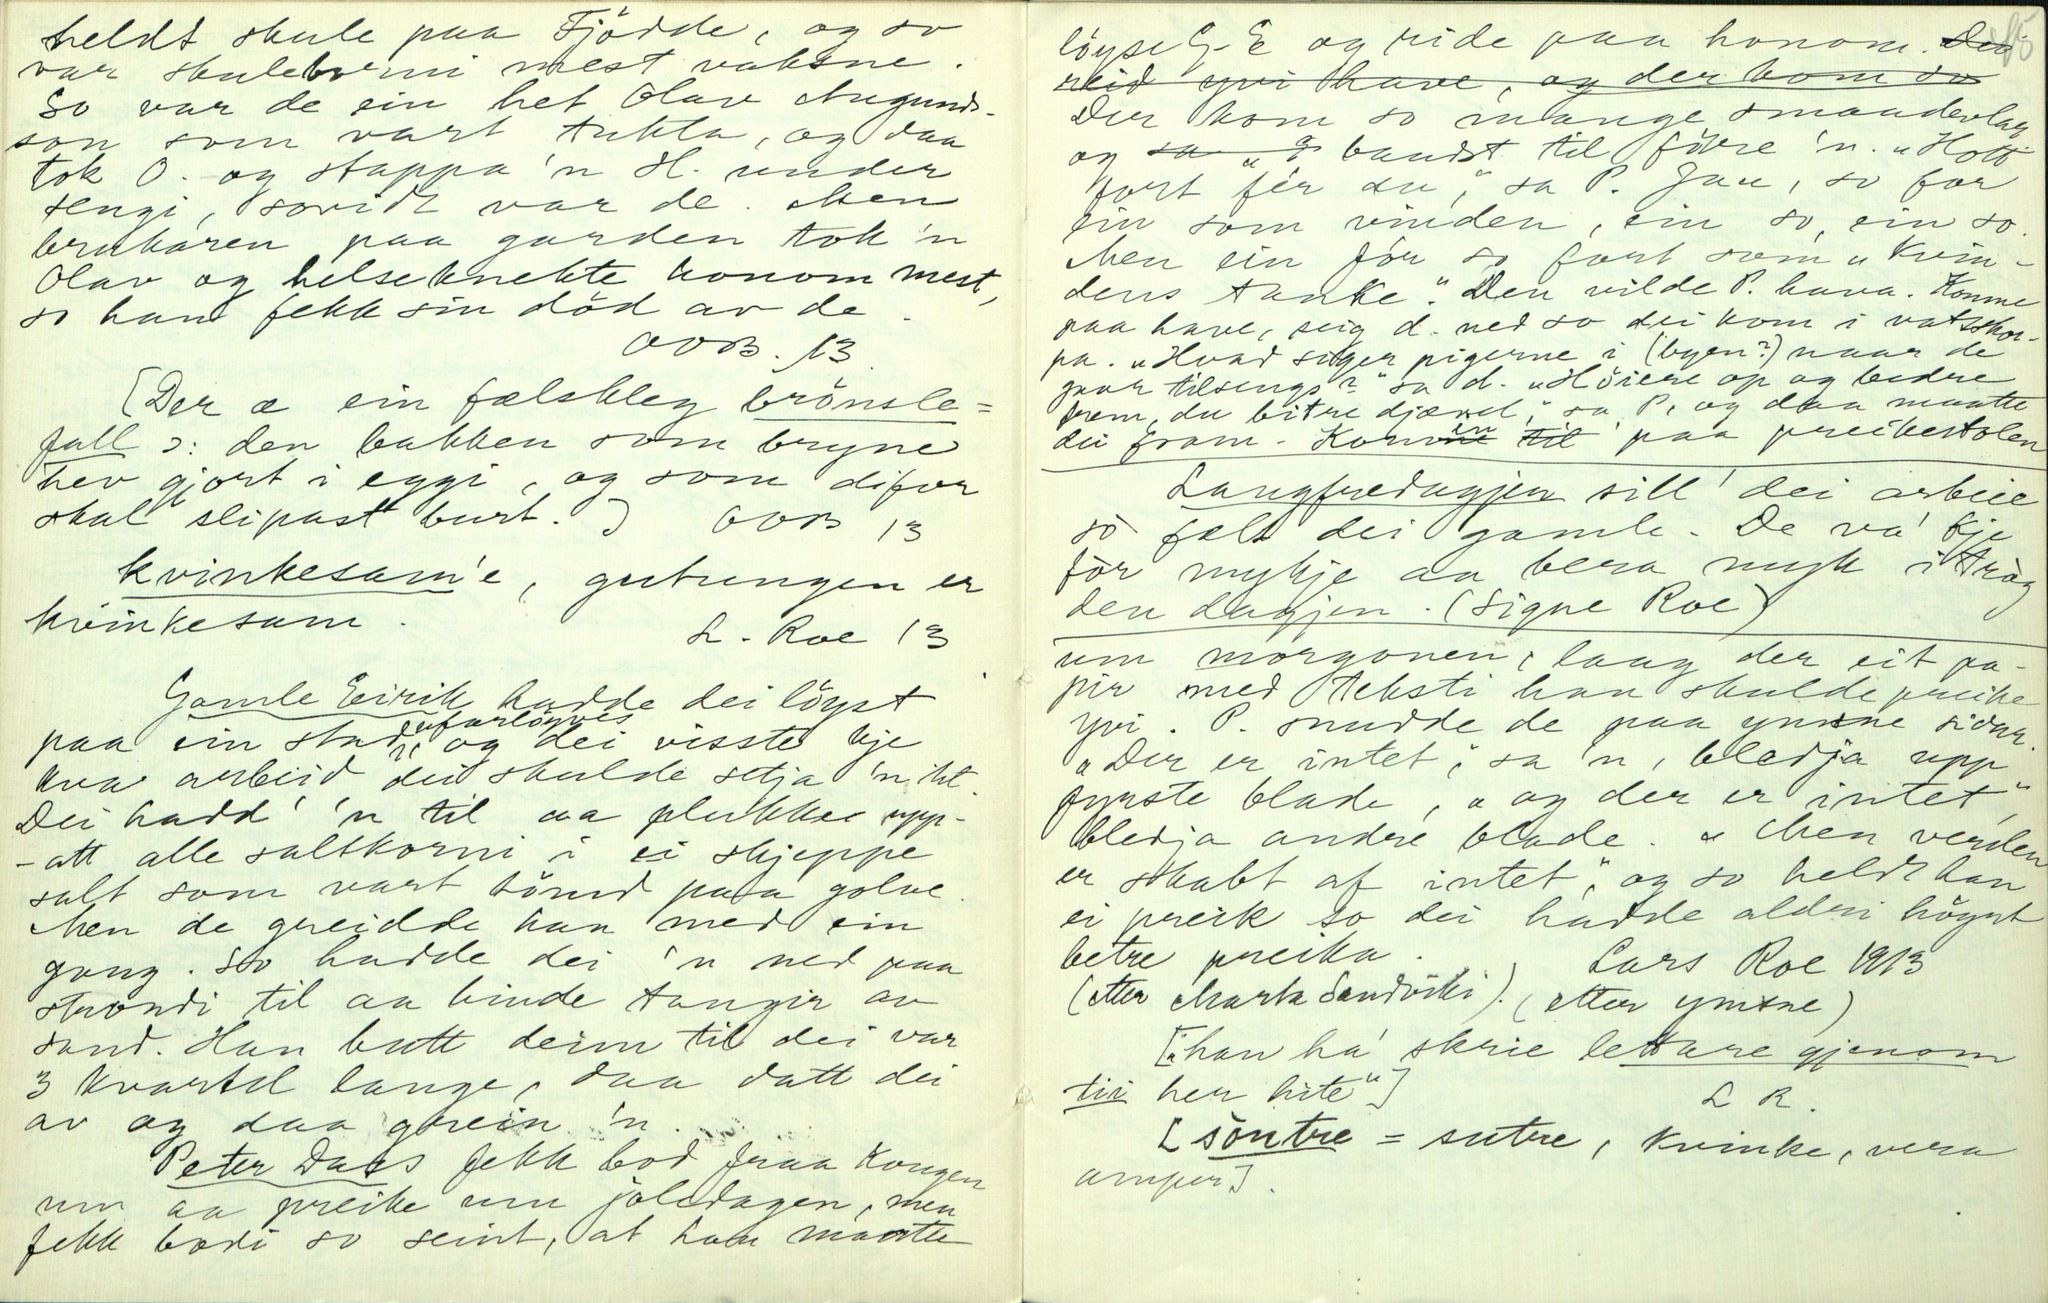 heldt skule paa Fjödde, og so
var skuleborni mest vaksne.
So var de ein het Olav Augunds-
son som vart tukta, og daa
tok O. og stappa 'n H. under
sengi, sovidt var de. Men
brukaren paa garden tok 'n
Olav og helseknekte honom mest,
so han fekk sin död av de.
OOB. 13
[Der æ ein fælsleg brönsle=
fall ɔ: den bakken som bryne
hev gjort i eggi, og som difor
skal slipast burt.] OOB 13
kvinkesam'e, gutungen er
kvinkesam.
L. Roe 13
Gamle Eirik hadde dei löyst
paa ein stad i "ufarlöyves" og dei visste kje
kva arbeid dei skulde setja 'n iht.
Dei hadd' 'n til aa plukke upp-
-att alle saltkorni i ei skjeppe
salt som vart tömd paa golve.
Men de greidde han med ein
gong. So hadde dei 'n ned paa
strondi til aa binde taugir av
sand. Han butt deim til dei var
3 kvartel lange, daa datt dei
av og daa grein 'n.
Peter Dass fekk bod fraa Kongen
um aa preike um joledagen, men
fekk bodi so seint, at han maatte
löyse G-E og ride paa honom. Dei
reid yvi have, og der kom so
Der kom so mange smaadevlar
og sa "d baudst til före 'n. "Hott
fort fér du," sa P. Jau, so for
ein som vinden, ein so, ein so.
Men ein fór so fort som "Kvin-
dens tanke". Den vilde P. hava. Komne
paa have, seig d. ned so dei kom i vatsskor-
pa. "Hvad siger pigerne i (byen?) naar de
gaar tilsengs?" sa d. "Höiere op og bedre
frem, du bitre djævel," sa P. og daa maatte
dei fram. Komne til inn paa preikestolen
Langfredagjen sill' dei arbeie
so fælt dei gamle. De va' kje
för mykje aa bera myk i tròg
den dagjen. (Signe Roe)
um morgonen, laag der eit pa-
pir med teksti han skulde preike
yvi. P. snudde de paa ymsne sidur.
"Der er intet", sa 'n, bledja upp
fyrste blade, "og der er intet"
bledja andre blade. "Men verden
er skabt af intet", og so heldt han
ei preik so dei hadde aldri höyrt
betre preika. Lars Roe 1913
(etter Marta Sandviki). (etter ymsne)
["han ha' skrie lettare gjenom
tii her hite"]
L R.
[söntre = sutre, kvinke, vera
amper].